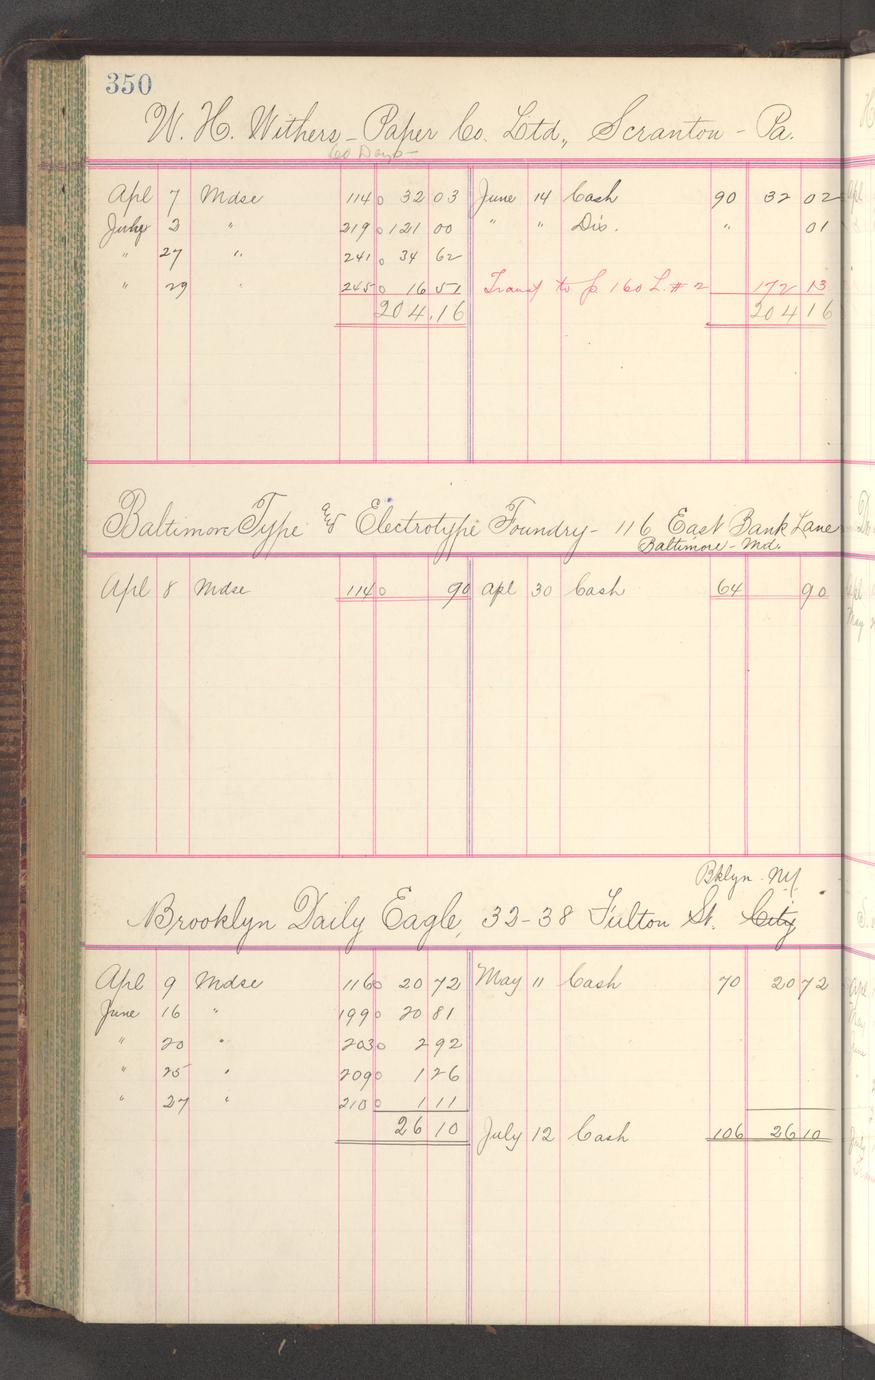 350
W. H. Withers - Paper Co. Ltd., Scranton - Pa.
60 Days -
Apl 7 Mdse 114 32 03 June 14 Cash 90 32 02
July 2 " 219 121 00 " " Dis. " 01
" 27 " 241 34 62
" 29 " 245 16 51 Transf to p. 160 L. # 2 172 13
204.16 204 16
Baltimore Type and Electrotype Foundry - 116 East Bank Lane
Baltimore - Md.
Apl 8 Mdse 114 90 Apl 30 Cash 64 90
Bklyn - NY
Brooklyn Daily Eagle, 32-38 Fulton St. City
Apl 9 Mdse 116 20 72 May 11 Cash 70 20 72
June 16 " 199 20 81
" 20 " 203 2 92
" 25 " 209 1 26
" 27 " 210 1 11
26 10 July 12 Cash 106 26 10